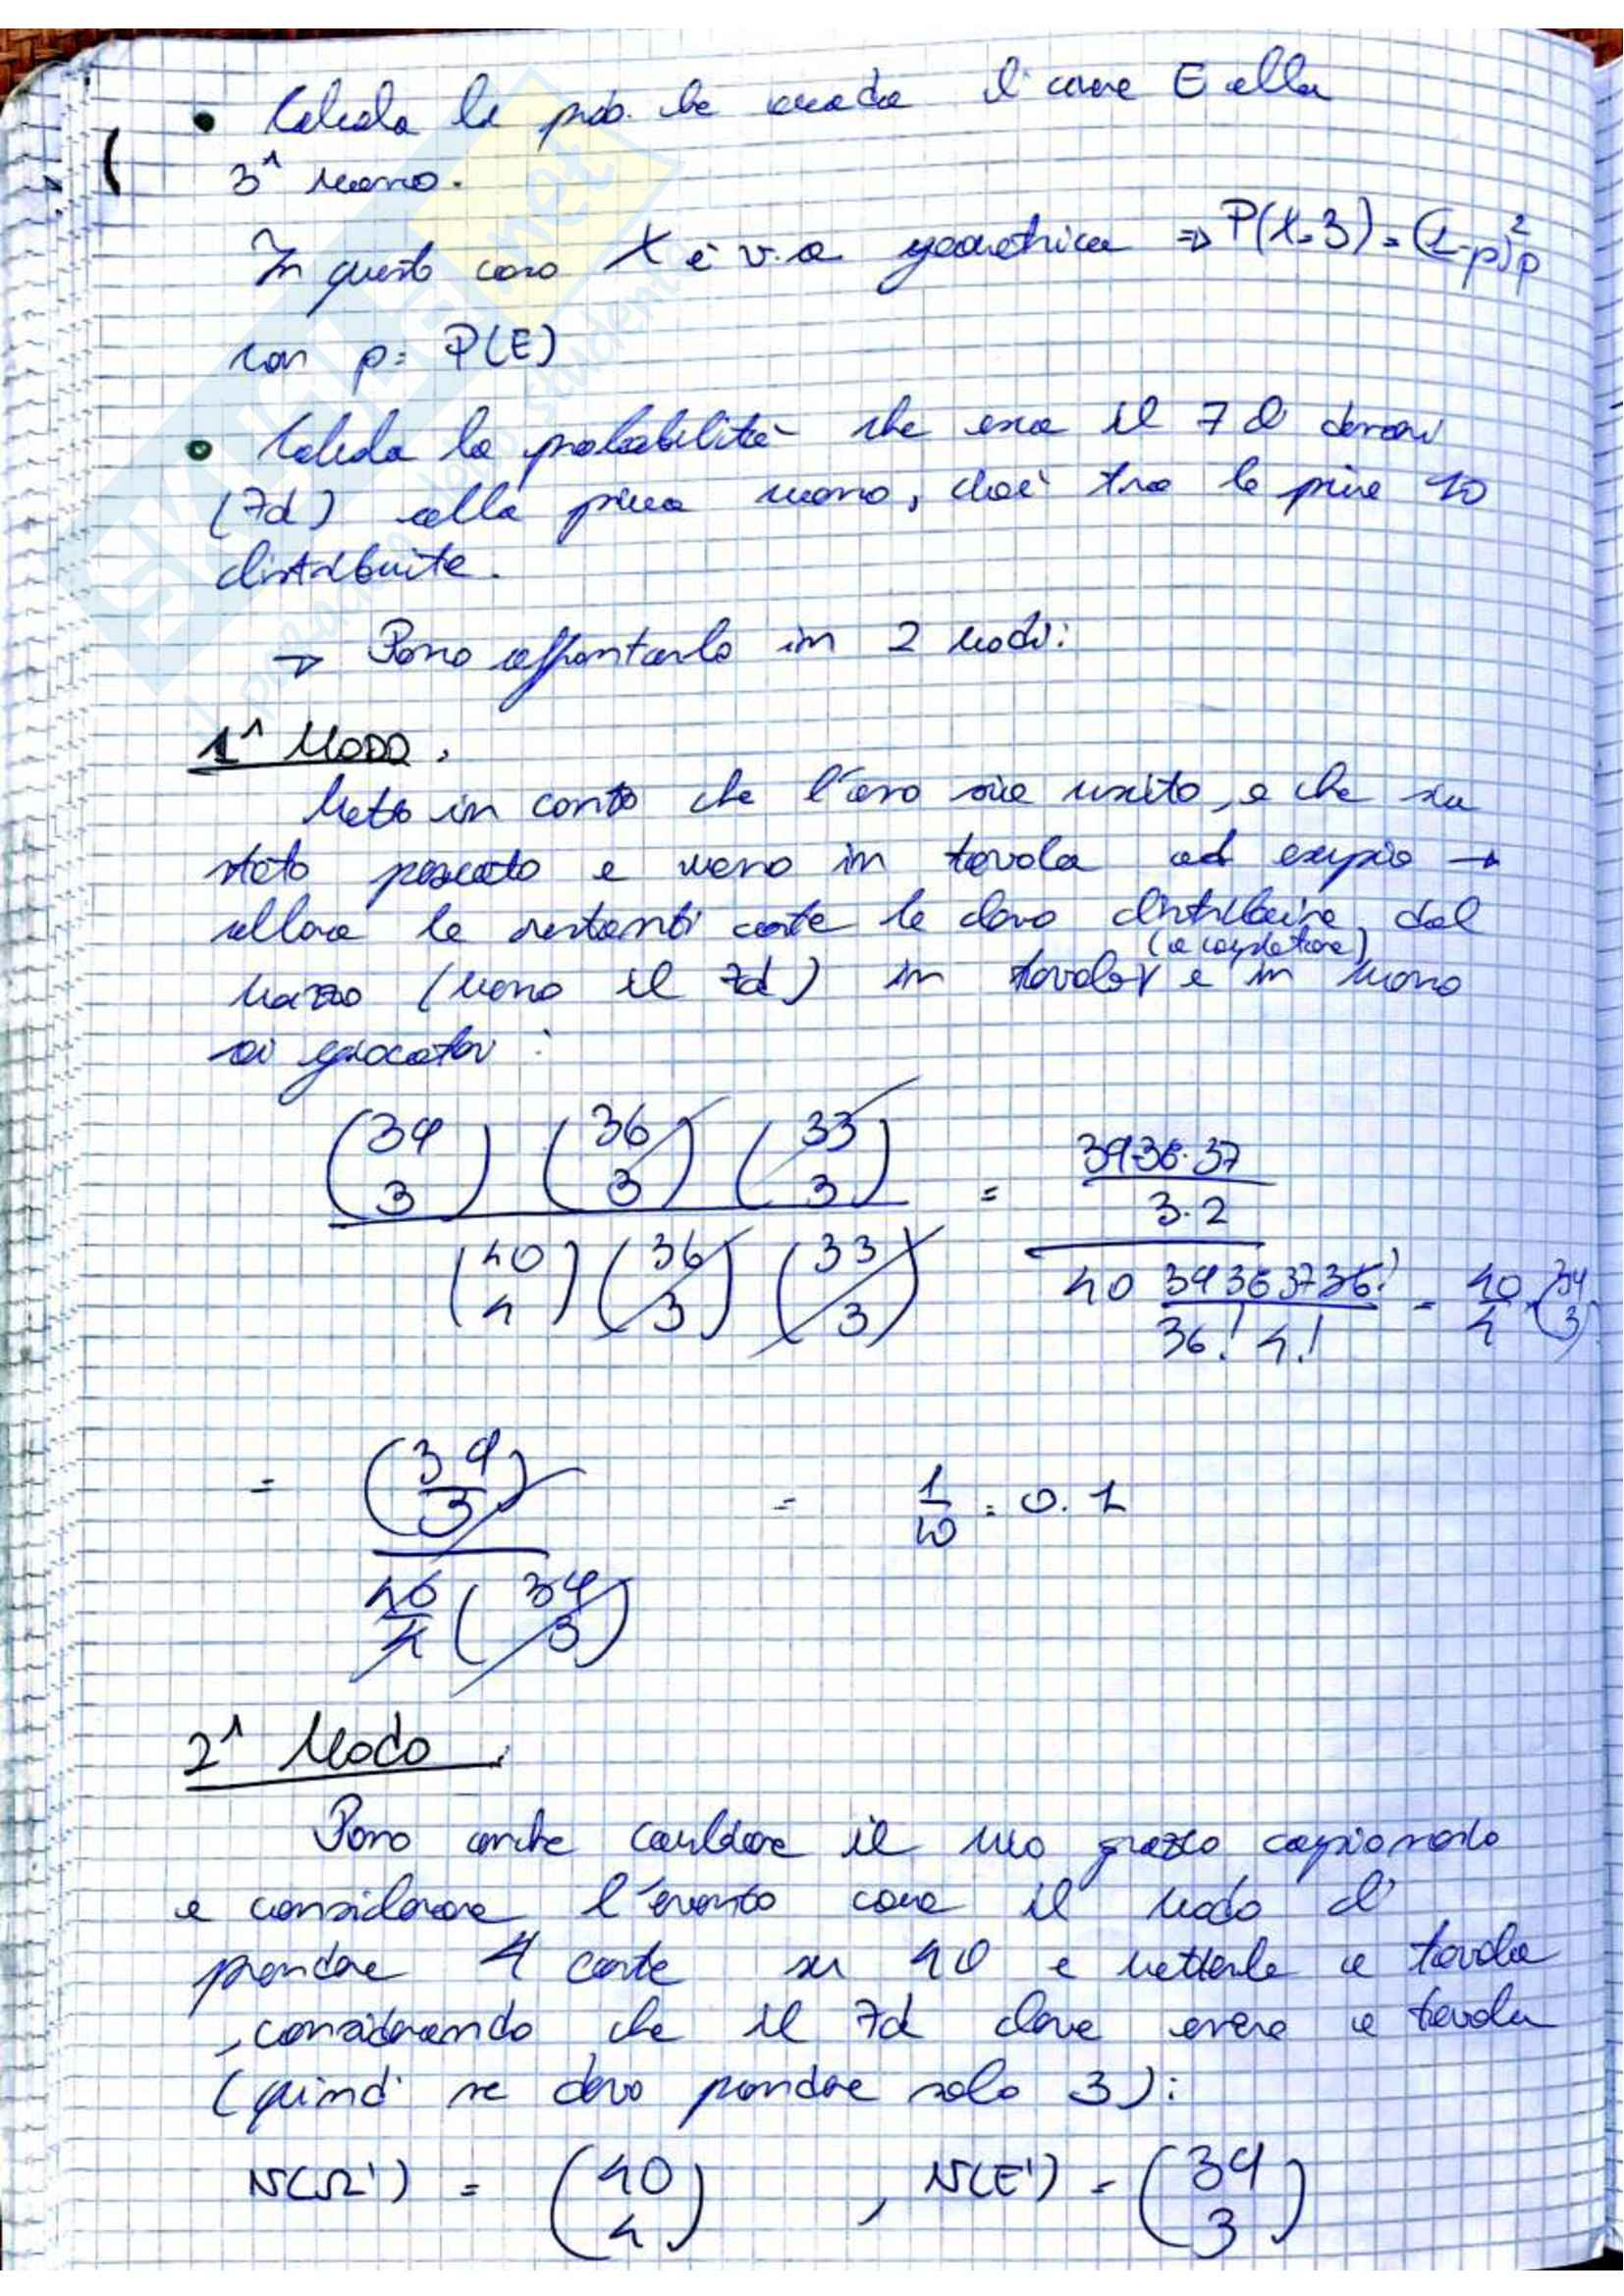 • Calcola la prob. che accada il caso E alla
3^ mano.
In questo caso X è v.a geometrica => P(X=3) = (1-p)²p
con p= P(E)
• Calcola la probabilità che esca il 7 di denari
(7d) alla prima mano, cioè tra le prime 10
distribuite.
→ Posso affrontarlo in 2 modi:
1^ MODO.
Metto in conto che l'asso sia uscito, e che sia
stato pescato e messo in tavola ad esempio →
allora le restanti carte le devo distribuire dal
(a completare)
mazzo (meno il 7d) in tavola e in mano
ai giocatori:
(39 3) (36 3) (33 3) / (40 4) (36 3) (33 3) = (39·38·37 / 3·2) / (40 39 38 37 36! / 36! 4!) = 40/4 · (39 3)
= (39 3) / (40/4 (39 3)) = 1/10 = 0.1
2^ Modo.
Posso anche cambiare il mio spazio campionario
e considerare l'evento come il modo di
prendere 4 carte su 40 e metterle a tavola
, considerando che il 7d deve essere a tavola
(quindi ne devo prendere solo 3):
N(Ω') = (40 4) , N(E') = (39 3)